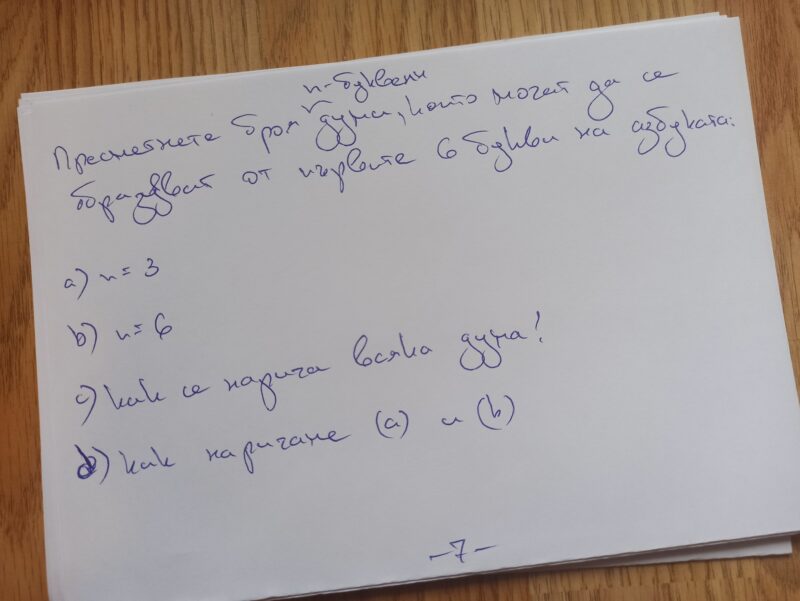 n-буквени
Пресметнете броя думи, които могат да се
образуват от първите 6 букви на азбуката:
a) n = 3
b) n = 6
c) как се нарича всяка дума!
d) как наричаме (a) и (b)
-7-